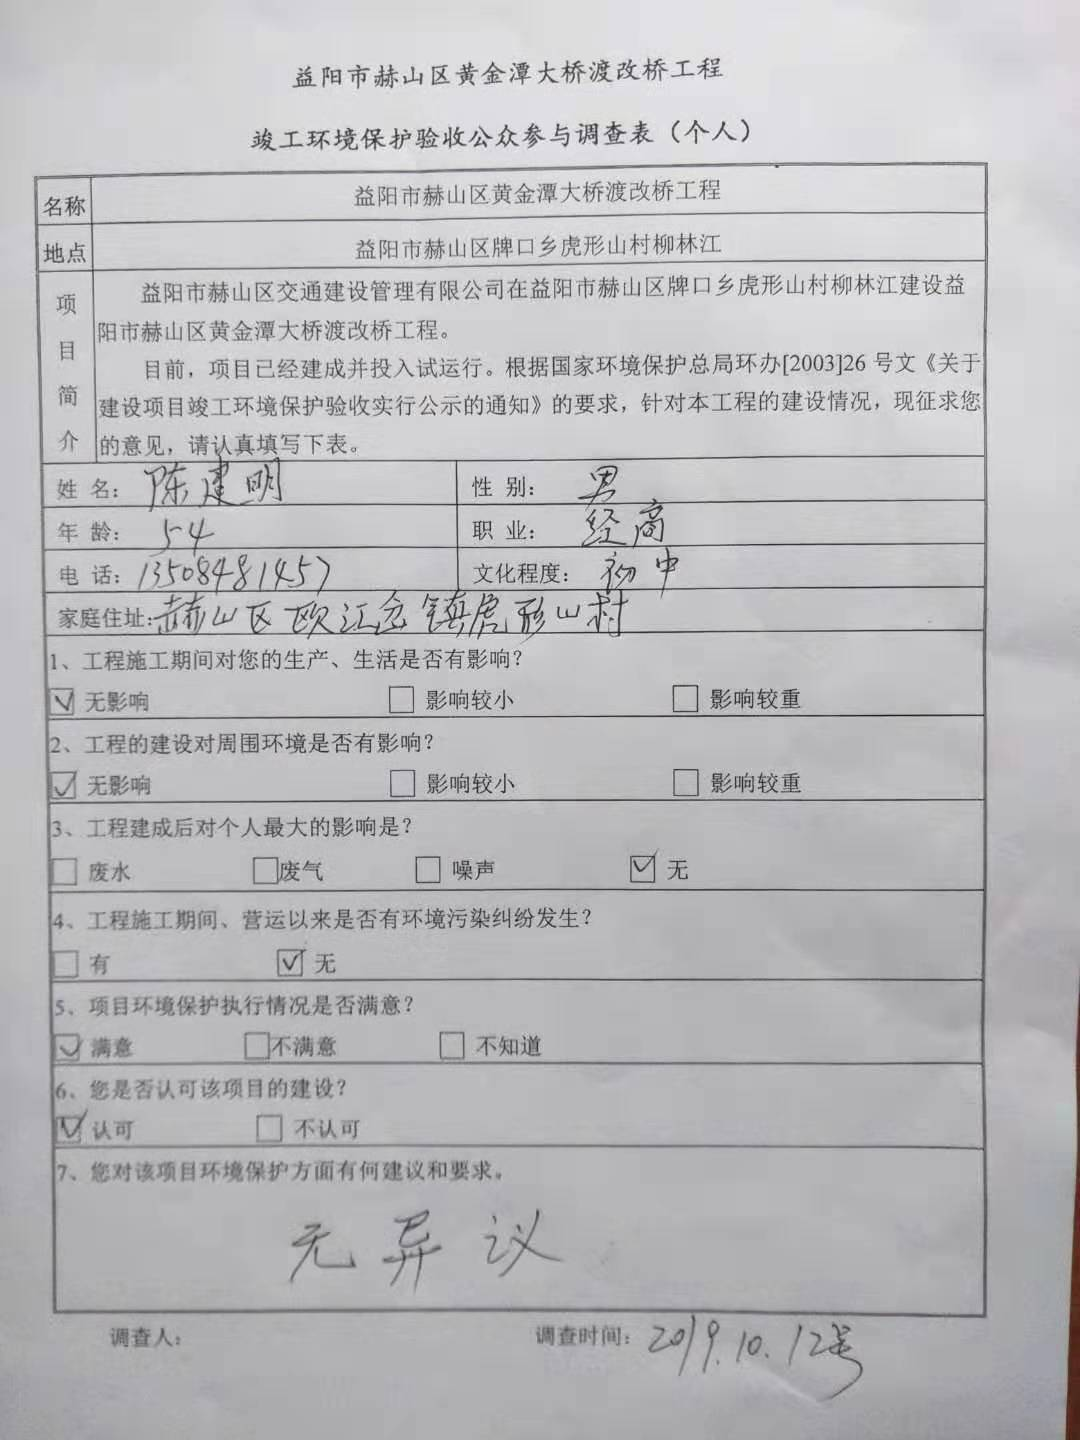 益阳市赫山区黄金潭大桥渡改桥工程
竣工环境保护验收公众参与调查表（个人）
名称 益阳市赫山区黄金潭大桥渡改桥工程
地点 益阳市赫山区牌口乡虎形山村柳林江
项目简介
益阳市赫山区交通建设管理有限公司在益阳市赫山区牌口乡虎形山村柳林江建设益
阳市赫山区黄金潭大桥渡改桥工程。
目前，项目已经建成并投入试运行。根据国家环境保护总局环办[2003]26 号文《关于
建设项目竣工环境保护验收实行公示的通知》的要求，针对本工程的建设情况，现征求您
的意见，请认真填写下表。
姓 名： 陈建明 性 别： 男
年 龄： 54 职 业： 经商
电 话： 13508481457 文化程度： 初中
家庭住址：赫山区欧江岔镇虎形山村
1、工程施工期间对您的生产、生活是否有影响？
☑ 无影响 □ 影响较小 □ 影响较重
2、工程的建设对周围环境是否有影响？
☑ 无影响 □ 影响较小 □ 影响较重
3、工程建成后对个人最大的影响是？
□ 废水 □废气 □ 噪声 ☑ 无
4、工程施工期间、营运以来是否有环境污染纠纷发生？
□ 有 ☑ 无
5、项目环境保护执行情况是否满意？
☑ 满意 □不满意 □ 不知道
6、您是否认可该项目的建设？
☑ 认可 □ 不认可
7、您对该项目环境保护方面有何建议和要求。
无异议
调查人： 调查时间：2019.10.12号